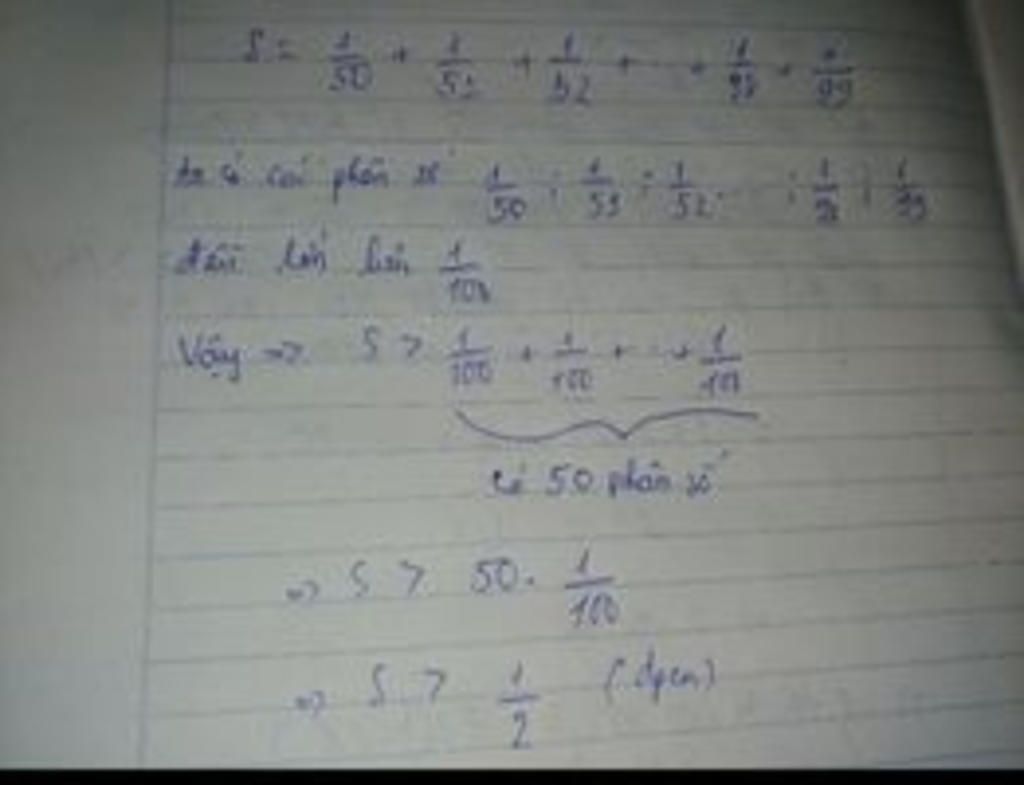 S = 1/50 + 1/51 + 1/52 + ... + 1/98 + 1/99
ta có các phân số 1/50 ; 1/51 ; 1/52 ... ; 1/98 ; 1/99
đều lớn hơn 1/100
Vậy => S > 1/100 + 1/100 + ... + 1/100
có 50 phân số
=> S > 50 . 1/100
=> S > 1/2 (đpcm)